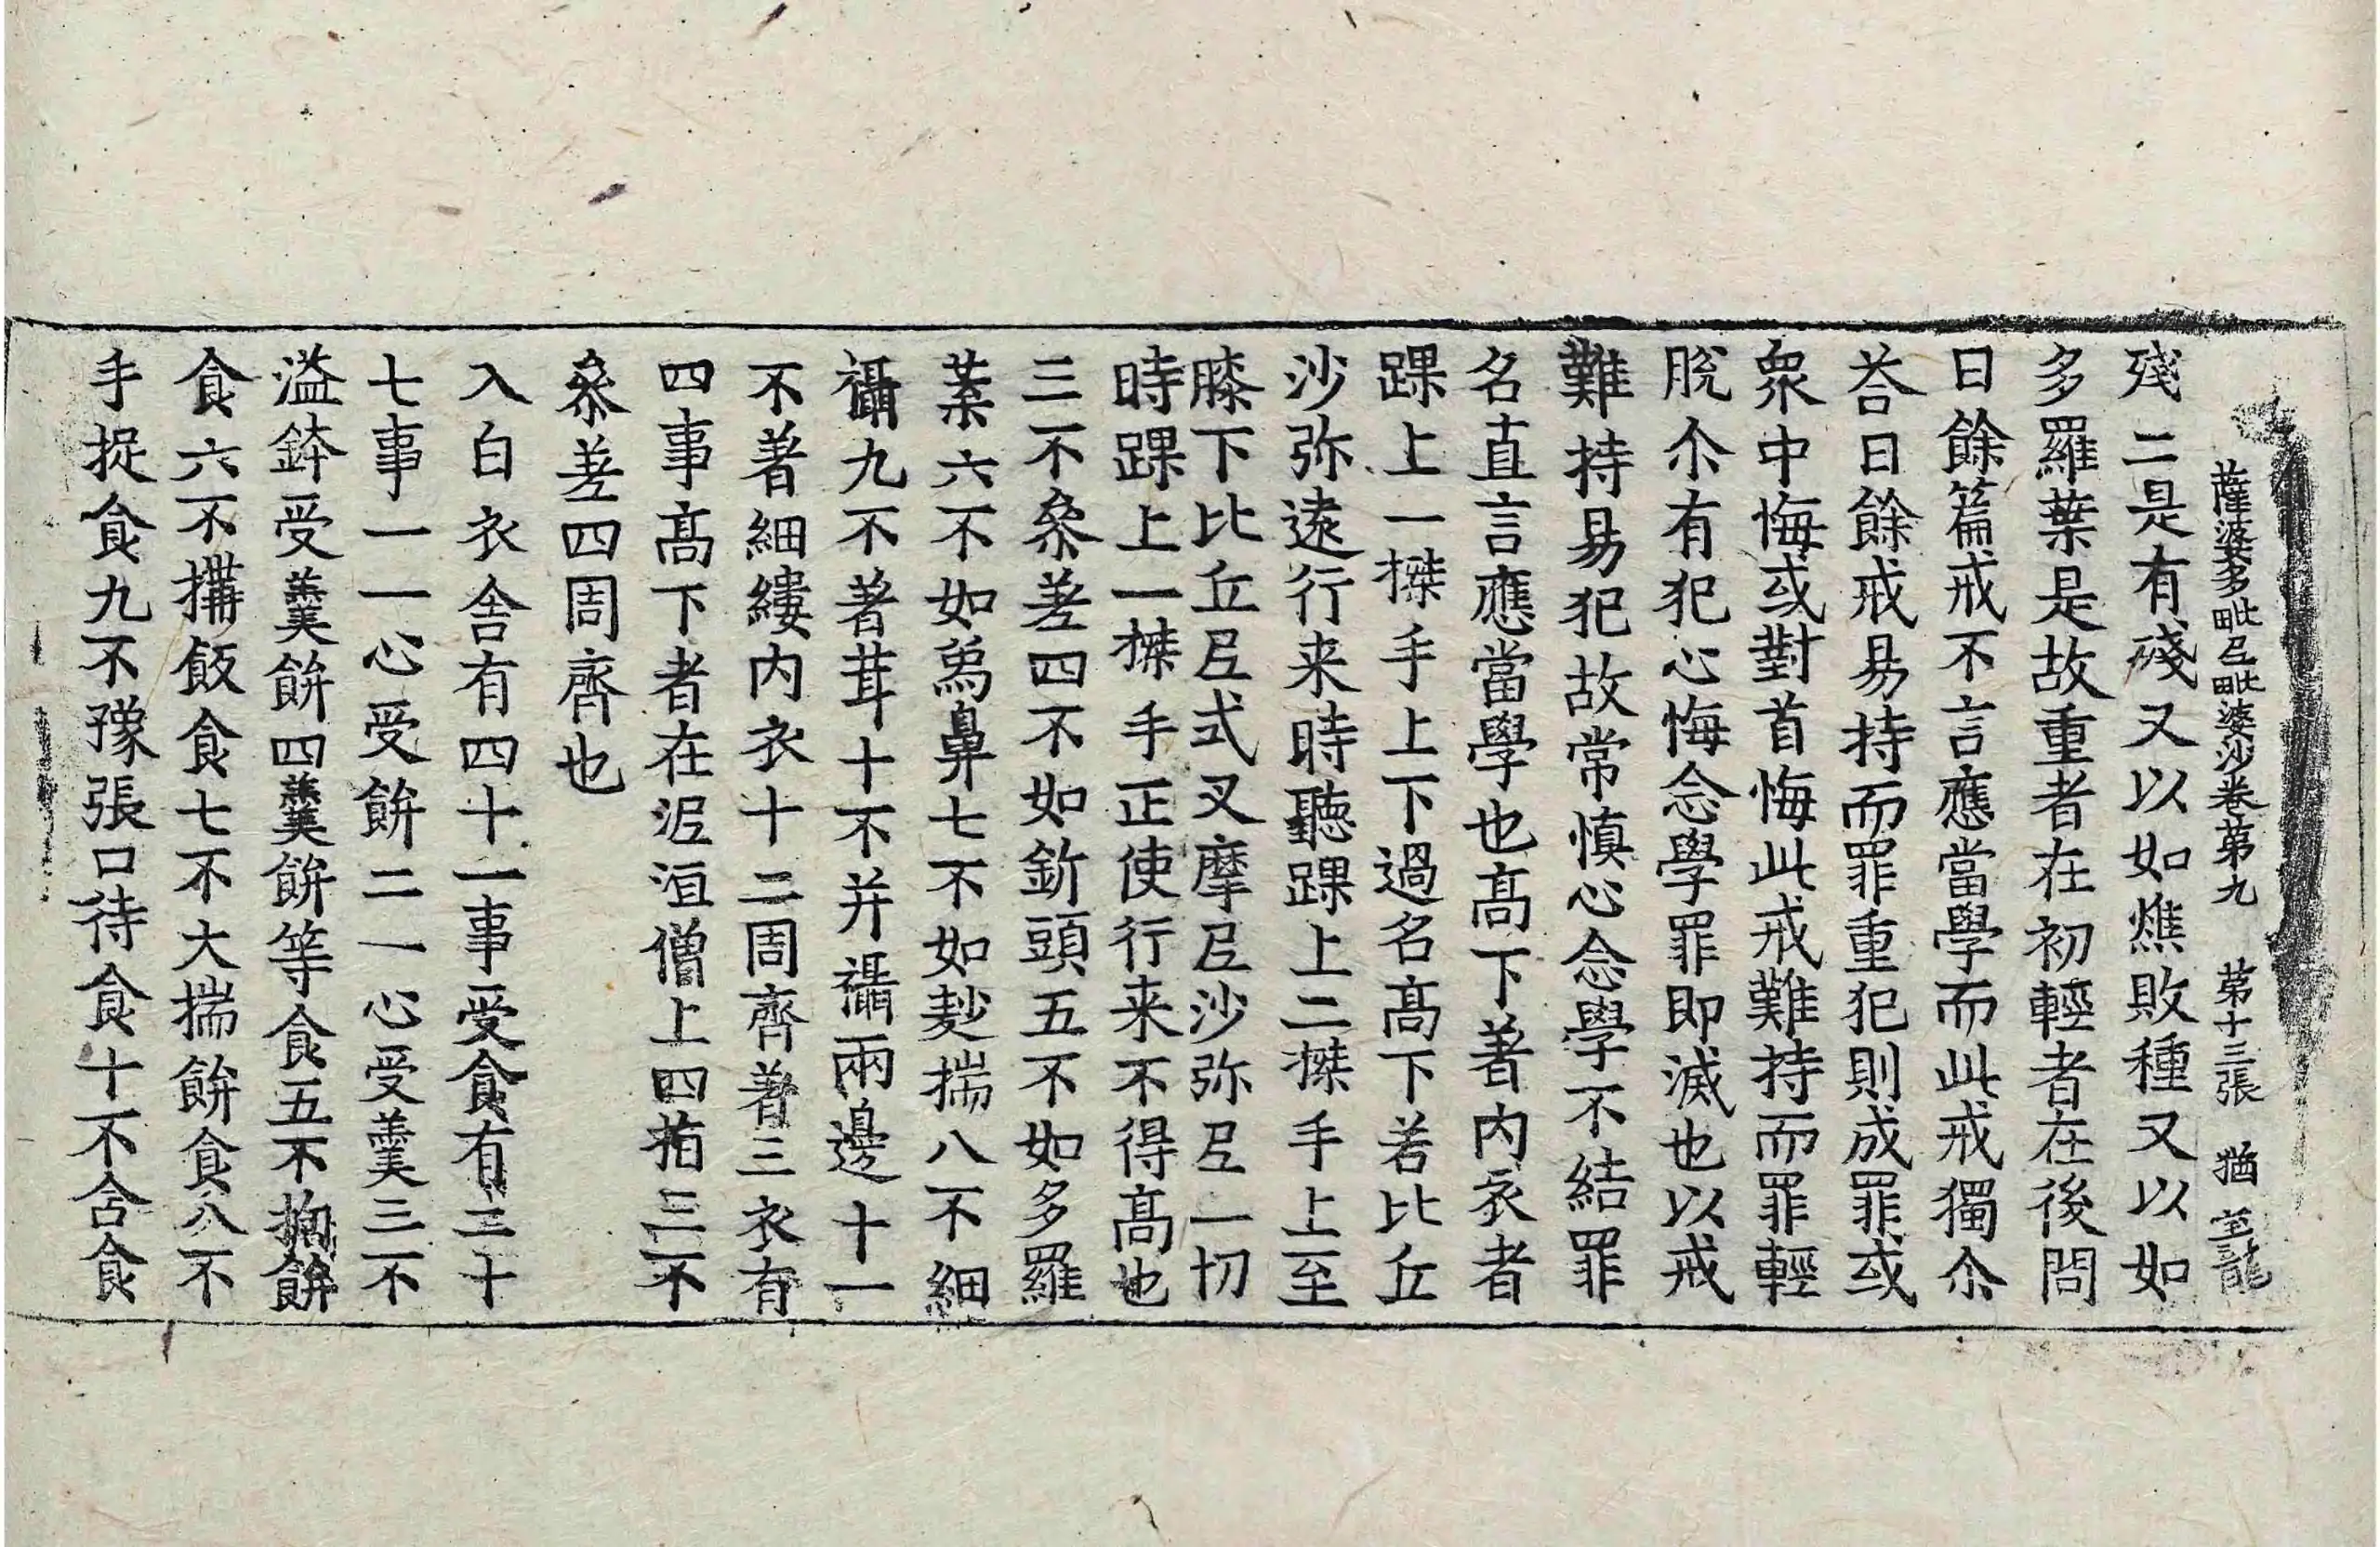 薩婆多毗尼毗婆沙卷第九 第十三張 猶
殘二是有殘又以如燋敗種又以如
多羅葉是故重者在初輕者在後問
曰餘篇戒不言應當學而此戒獨尒
荅曰餘戒易持而罪重犯則成罪或
衆中悔或對首悔此戒難持而罪輕
脫尒有犯心悔念學罪即滅也以戒
難持易犯故常慎心念學不結罪
名直言應當學也髙下著內衣者
踝上一搩手上下過名髙下若比丘
沙弥遠行来時聽踝上二搩手上至
膝下比丘尼式叉摩尼沙弥尼一切
時踝上一搩手正使行来不得髙也
三不叅差四不如釿頭五不如多羅
葉六不如爲鼻七不如麨揣八不細
襵九不著茸十不并襵兩邊十一
不著細縷內衣十二周齊著三衣有
四事髙下者在泥洹僧上四指三不
叅差四周齊也
入白衣舍有四十一事受食有三十
七事一一心受餅二一心受羹三不
溢鉢受羹餅四羹餅等食五不掬餅
食六不搆飯食七不大揣餅食八不
手捉食九不豫張口待食十不含食